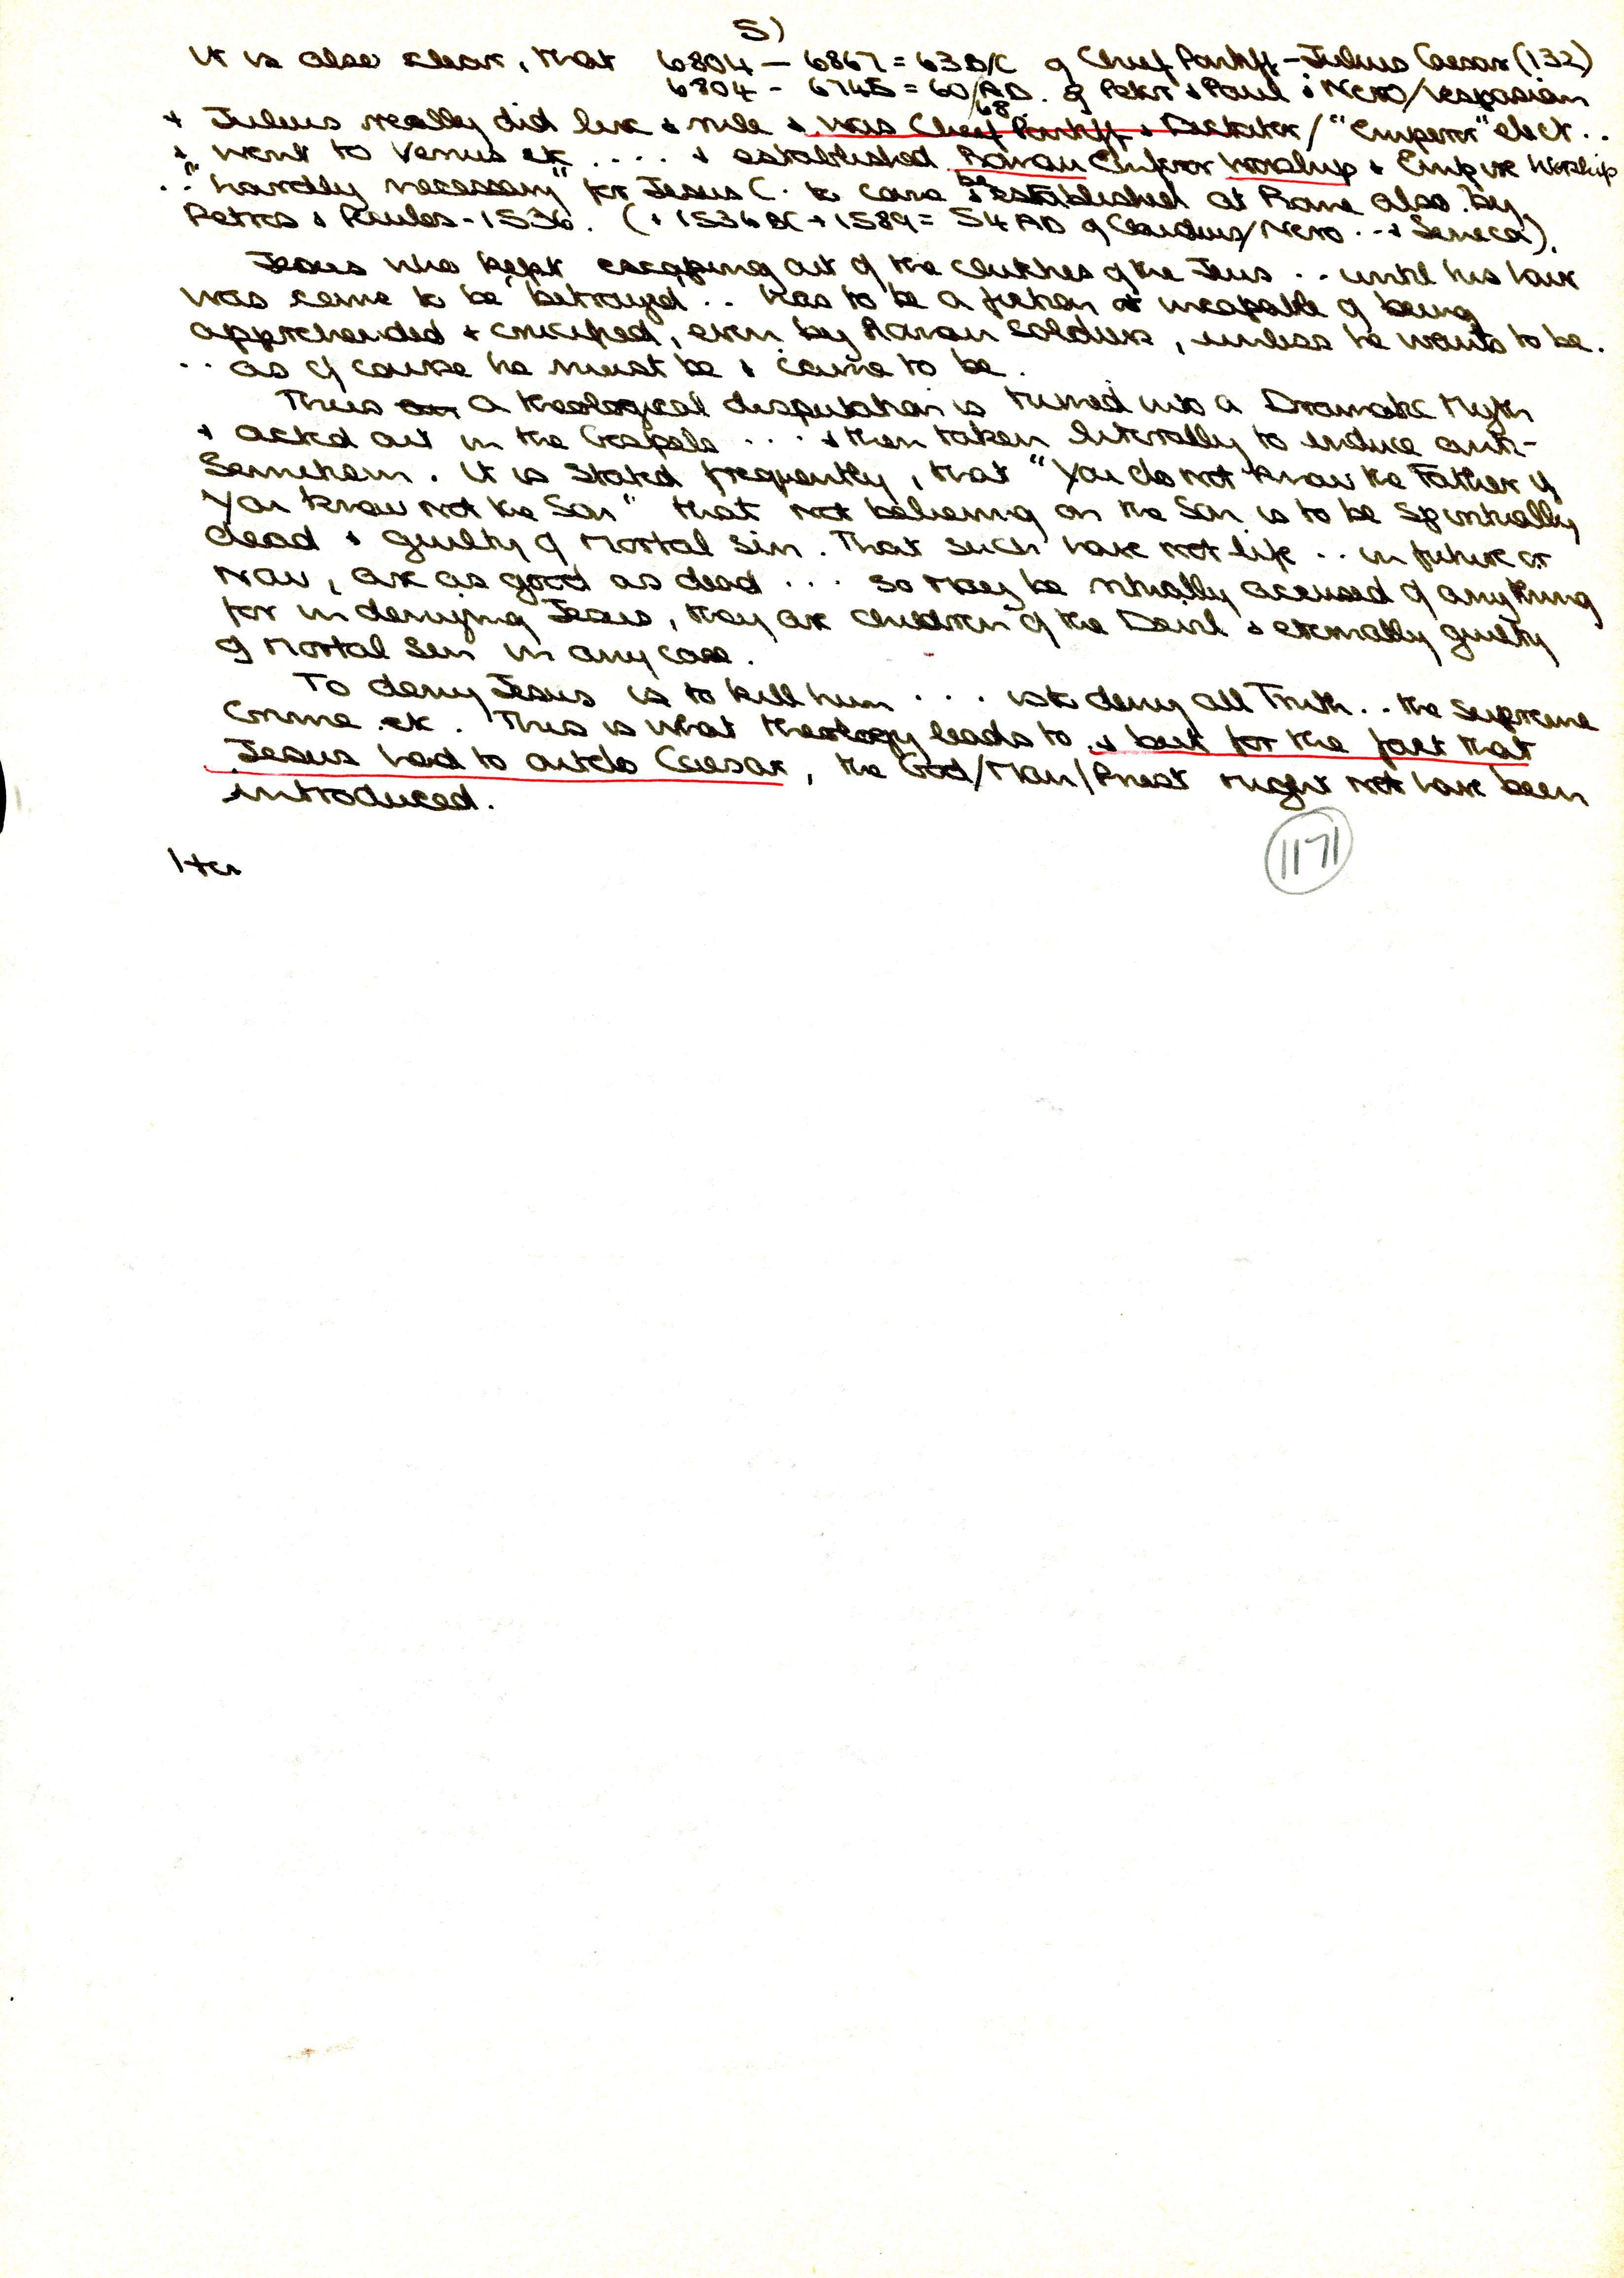 5)
It is also clear, that 6804 – 6867 = 63 B/C of Chief Pontiff – Julius Caesar (132)
6804 – 6745 = 60/68 AD. of Peter & Paul & Nero/Vespasian
+ Julius really did live & rule & was Chief Pontiff & Dictator/"Emperor" elect ..
+ went to Venus etc .... & established Roman Emperor Worship & Empire Worship
∴ "hardly necessary" for Jesus C. to come & be established at Rome also. by
Petros & Paulos – 1536. (+ 1536 BC + 1589 = 54 AD of Claudius/Nero ..& Seneca).
Jesus who kept escaping out of the clutches of the Jews .. until his hour
was come to be "betrayed .. has to be a fiction & incapable of being
apprehended & crucified, even by Roman Soldiers, unless he wants to be.
.. as of course he must be & came to be.
Thus a theological disputation is turned into a Dramatic Myth
& acted out in the Gospels .... & then taken literally to induce anti-
Semitism. It is stated frequently, that "You do not know the Father if
You know not the Son" that not believing on the Son is to be spiritually
dead & guilty of Mortal sin. That such have not life .. in future or
Now, are as good as dead ... so may be ritually accused of anything
for in denying Jesus, they are children of the Devil & eternally guilty
of Mortal Sin in any case.
To deny Jesus is to kill him ... is to deny all Truth .. the Supreme
Crime etc. This is what theology leads to & but for the fact that
Jesus had to outdo Caesar, the God/Man/Priest might not have been
introduced.
1171